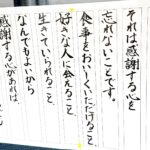 それは感謝する心を
忘れないことです。
食事をおいしくいただけること、
好きな人に会えること、
生きていられること、
なんでもよいから
感謝する心があれば、